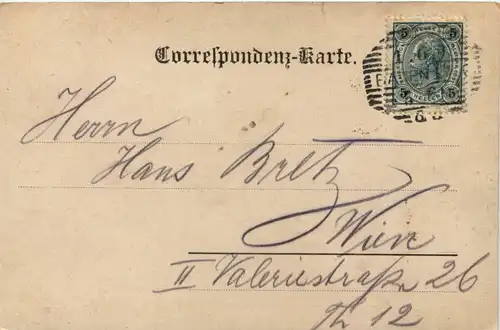 Correspondenz-Karte.
5 5
5 5
Herrn
Hans Bretz
Wien
II Valeriestraße 26
Th 12